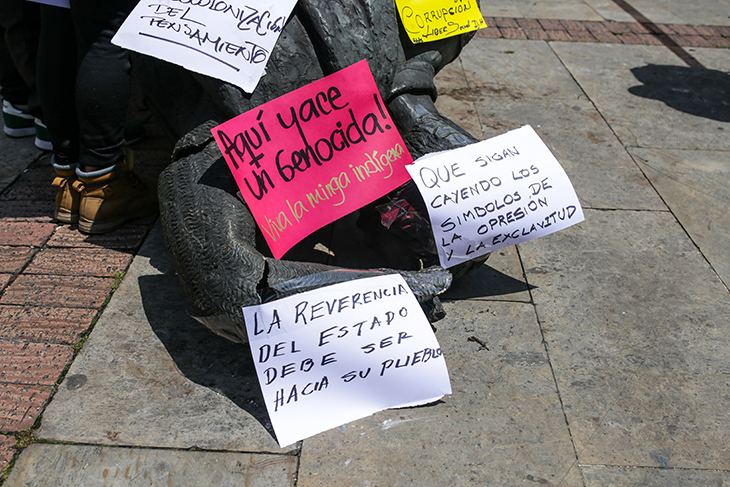 DEL
PENSAMIENTO
CORRUPCIÓN
Aquí yace
un Genocida!
Viva la minga indígena
QUE SIGAN
CAYENDO LOS
SIMDOLOS DE
LA OPRESIÓN
Y LA EXCLAVITUD
LA REVERENCIA
DEL ESTADO
DEBE SER
HACIA SU PUEBLO